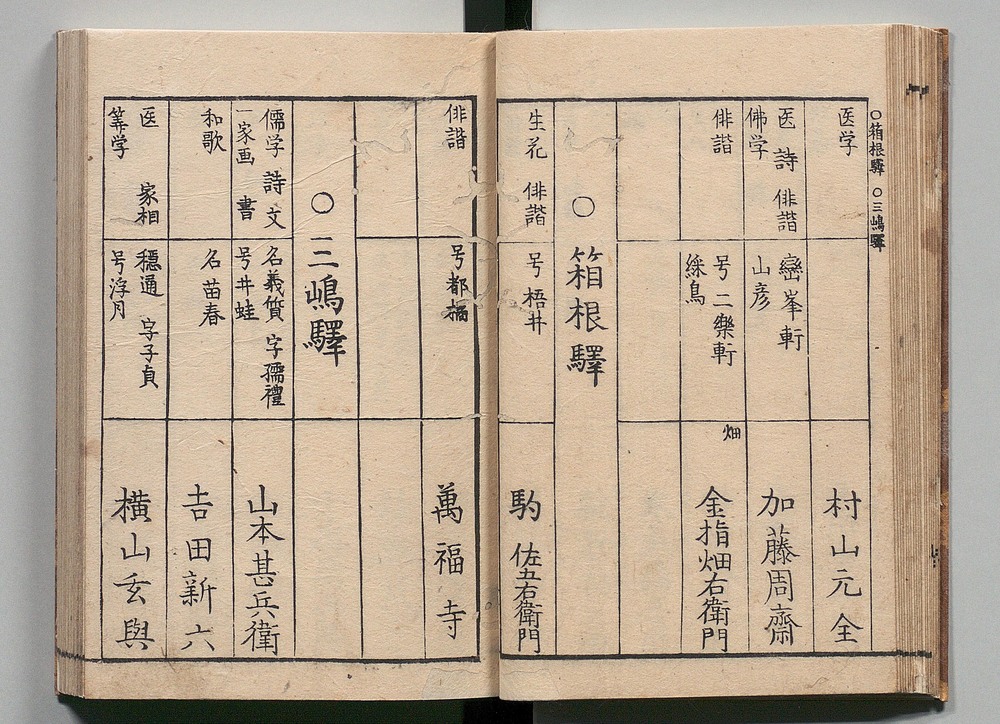 ○箱根驛 ○三嶋驛
医学 村山元全
医 詩 俳諧
佛学
巒峯軒
山彦
加藤周齋
俳諧
号二樂軒
綵鳥
畑
金指畑右衛門
○箱根驛
生花 俳諧 号梧井 駒佐五右衛門
俳諧 号都福 萬福寺
○三嶋驛
儒学 詩文
一家画 書
名義質 字孺禮
号井蛙
山本甚兵衛
和歌 名苗春 吉田新六
医 家相
筭学
穩通 字子貞
号浮月
横山玄與